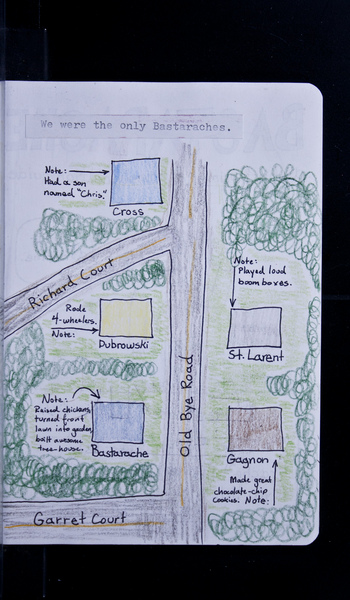 We were the only Bastaraches.
Note:
Had a son
named "Chris."
Cross
Richard Court
Note:
Played loud
boom boxes.
Rode
4-wheelers.
Note:
Dubrowski
St. Larent
Old Bye Road
Note:
Raised chickens,
turned front
lawn into garden,
built awesome
tree-house.
Bastarache
Gagnon
Made great
chocolate-chip
cookies. Note:
Garret Court